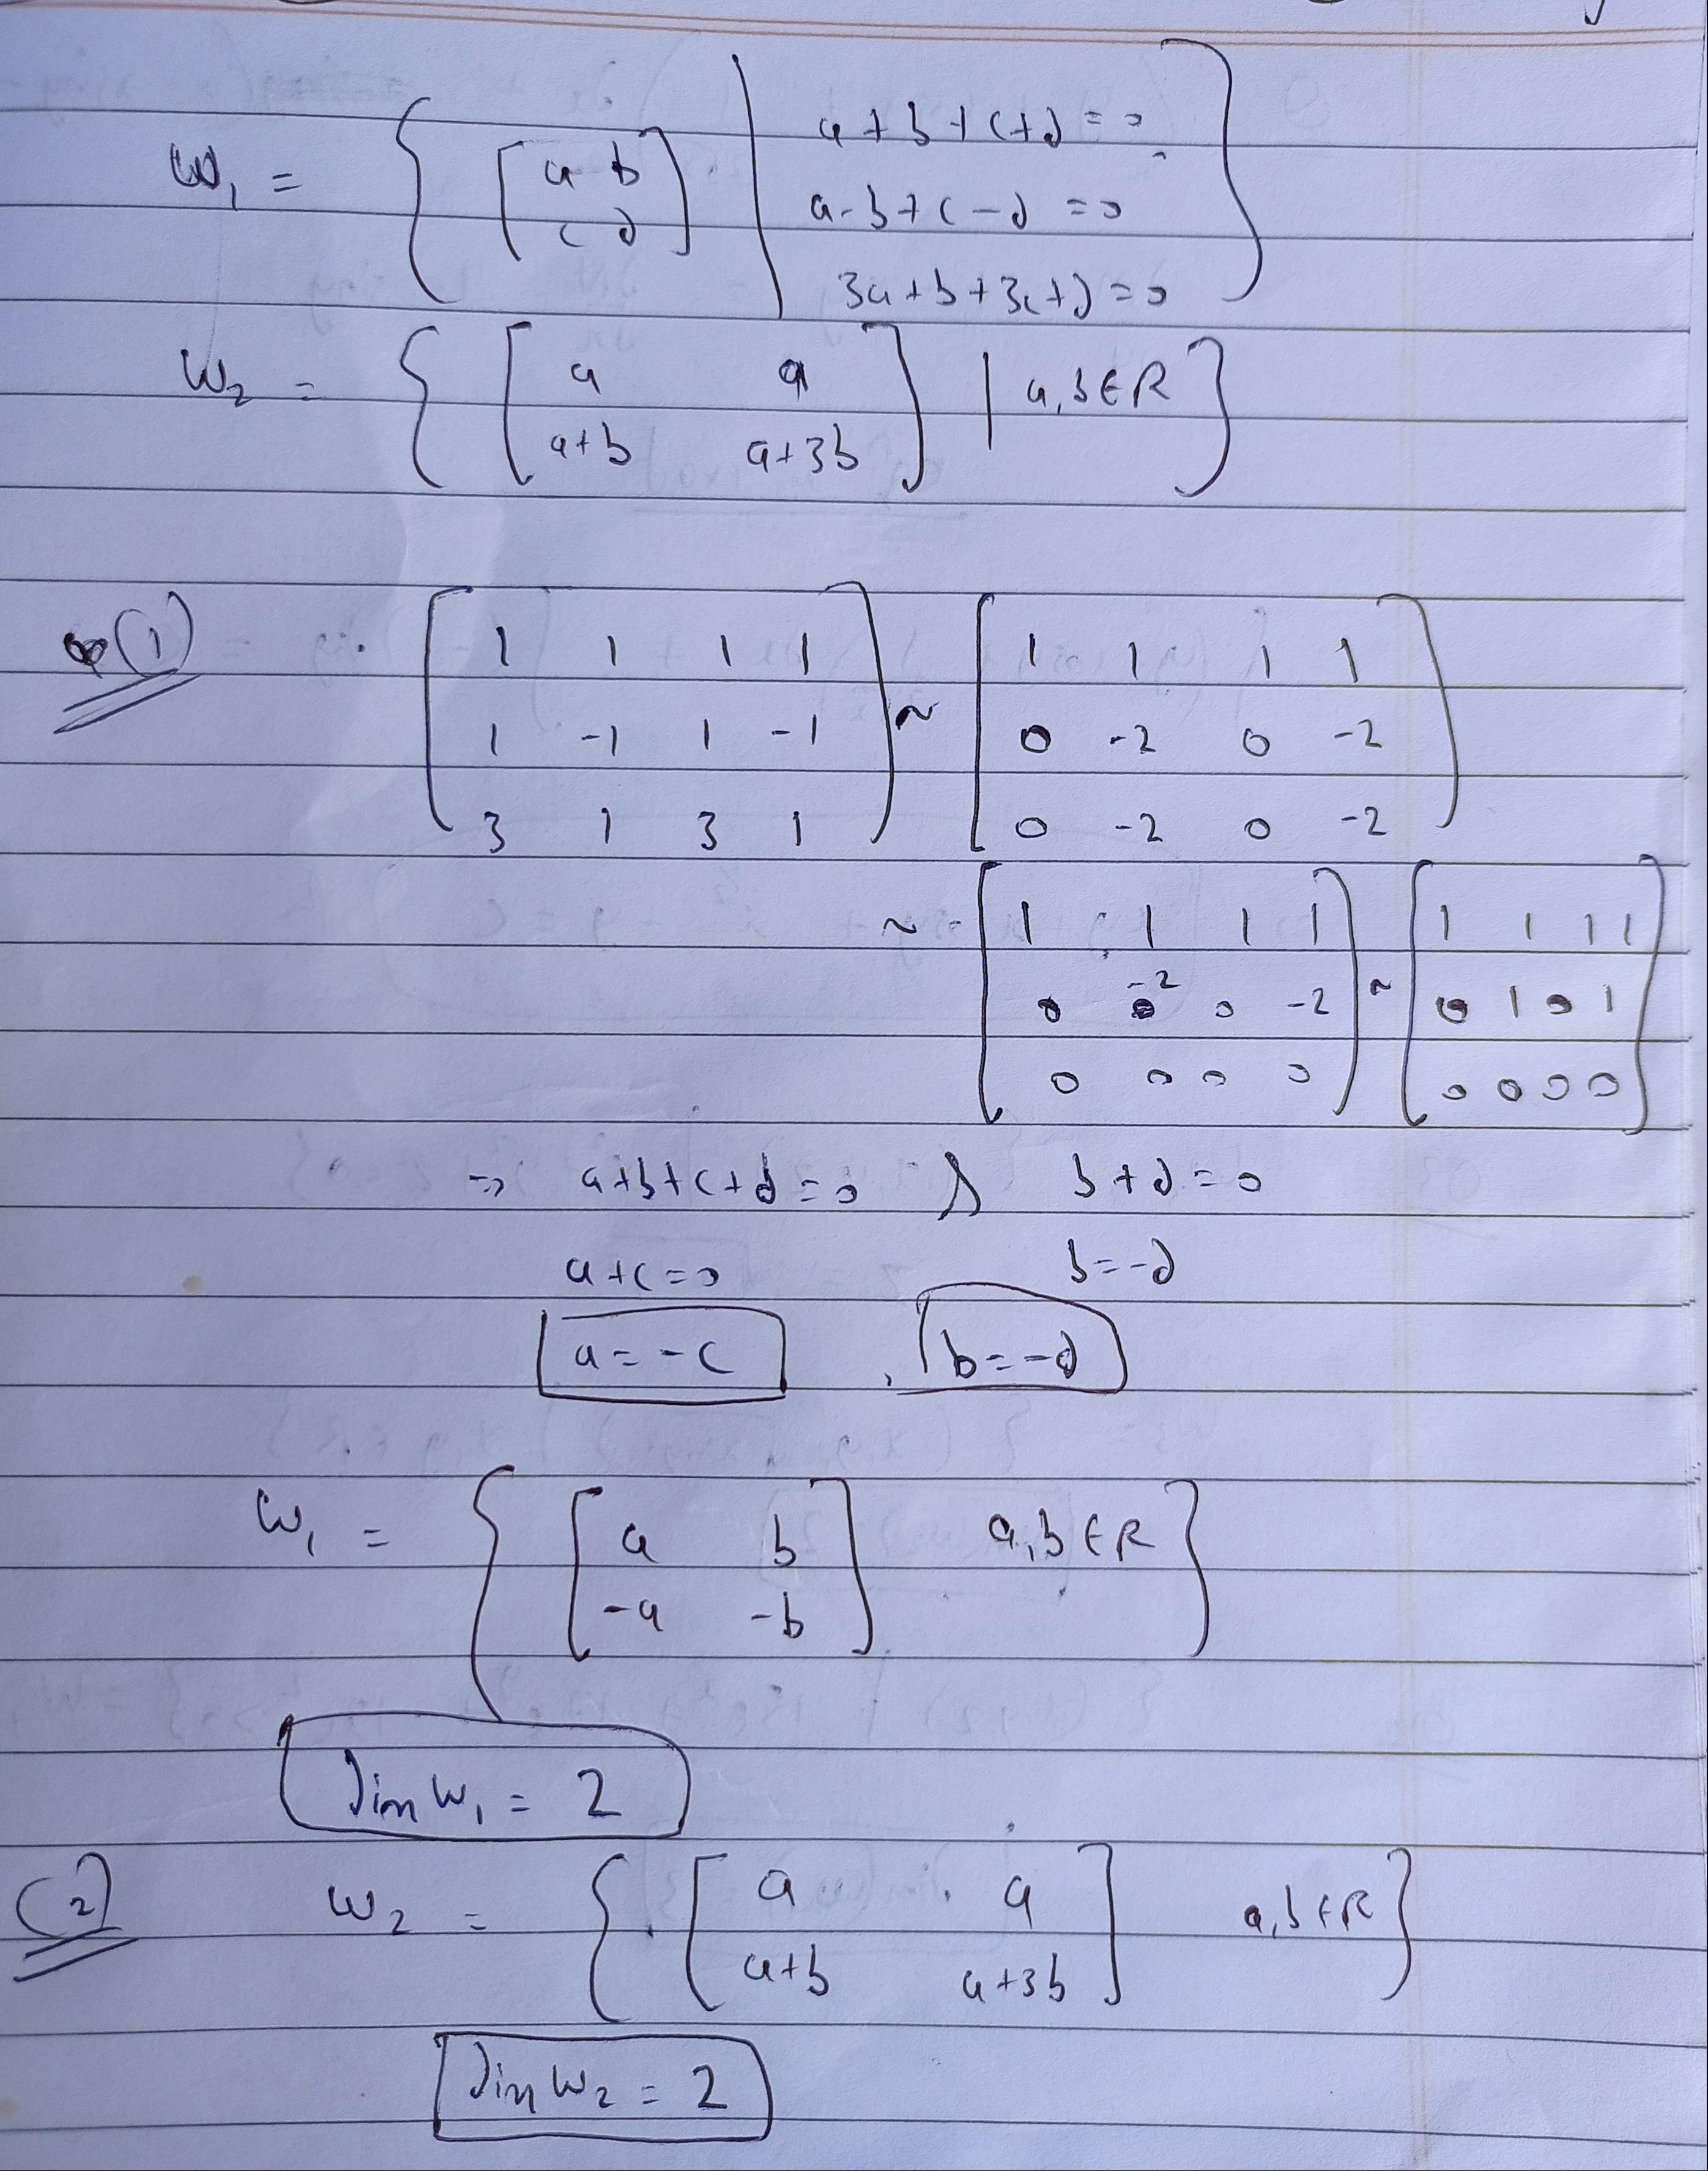 W₁ = { [ a b
c d ] | a+b+c+d = 0
a-b+c-d = 0
3a+b+3c+d = 0 }
W₂ = { [ a a
a+b a+3b ] | a,b∈R }
(1) [ 1 1 1 1
1 -1 1 -1
3 1 3 1 ] ~ [ 1 1 1 1
0 -2 0 -2
0 -2 0 -2 ]
~ [ 1 1 1 1
0 -2 0 -2
0 0 0 0 ] ~ [ 1 1 1 1
0 1 0 1
0 0 0 0 ]
⇒ a+b+c+d=0 & b+d=0
a+c=0 b=-d
a=-c , b=-d
W₁ = { [ a b
-a -b ] a,b∈R }
dim W₁ = 2
(2) W₂ = { [ a a
a+b a+3b ] a,b∈R }
dim W₂ = 2